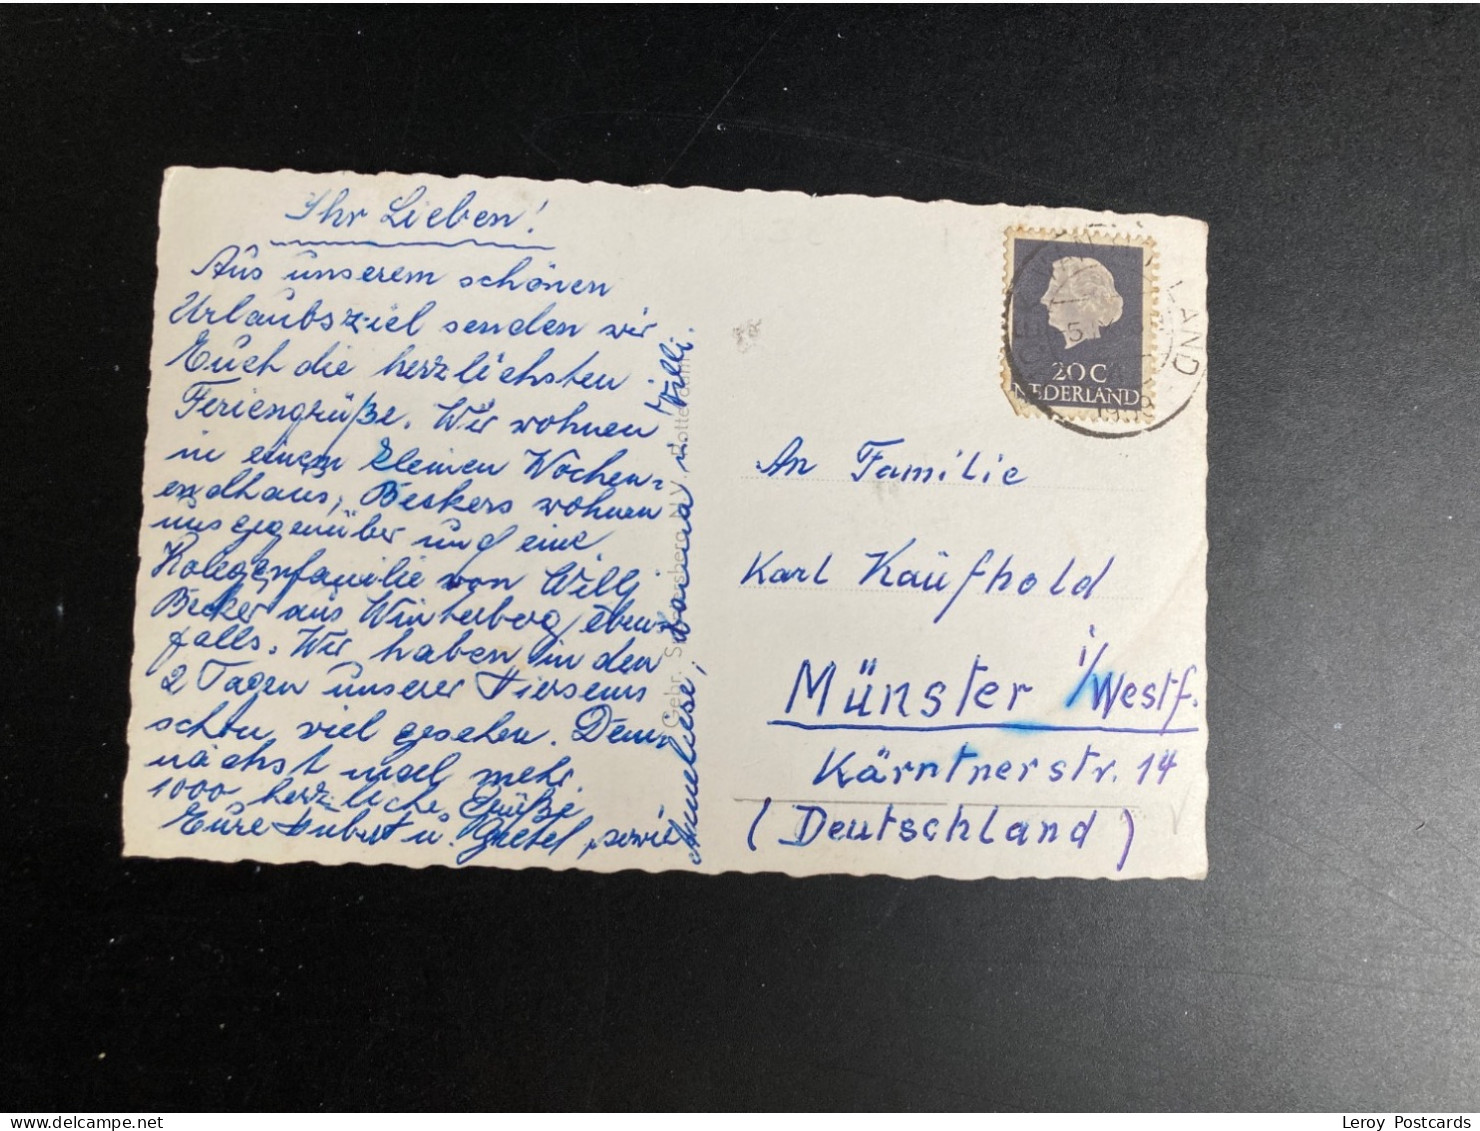 Ihr Lieben!
Aus unserem schönen
Urlaubsziel senden wir
Euch die herzlichsten
Feriengrüße. Wir wohnen
in einem kleinen Wochen=
endhaus, Beckers wohnen
uns gegenüber und eine
Kolegenfamilie von Willj
Becker aus Winterberg eben=
falls. Wir haben in den
2 Tagen unseres Hierseins
schon viel gesehen. Dem=
nächst mal mehr.
1000 herzliche Grüße
Eure Hubert u. Gretel, sowie
Anneliese, u. Willi
Gebr. Spanjersberg N.V. Rotterdam
20 C
NEDERLAND
An Familie
Karl Kaufhold
Münster i/Westf.
Kärntnerstr. 14
(Deutschland)
Leroy Postcards